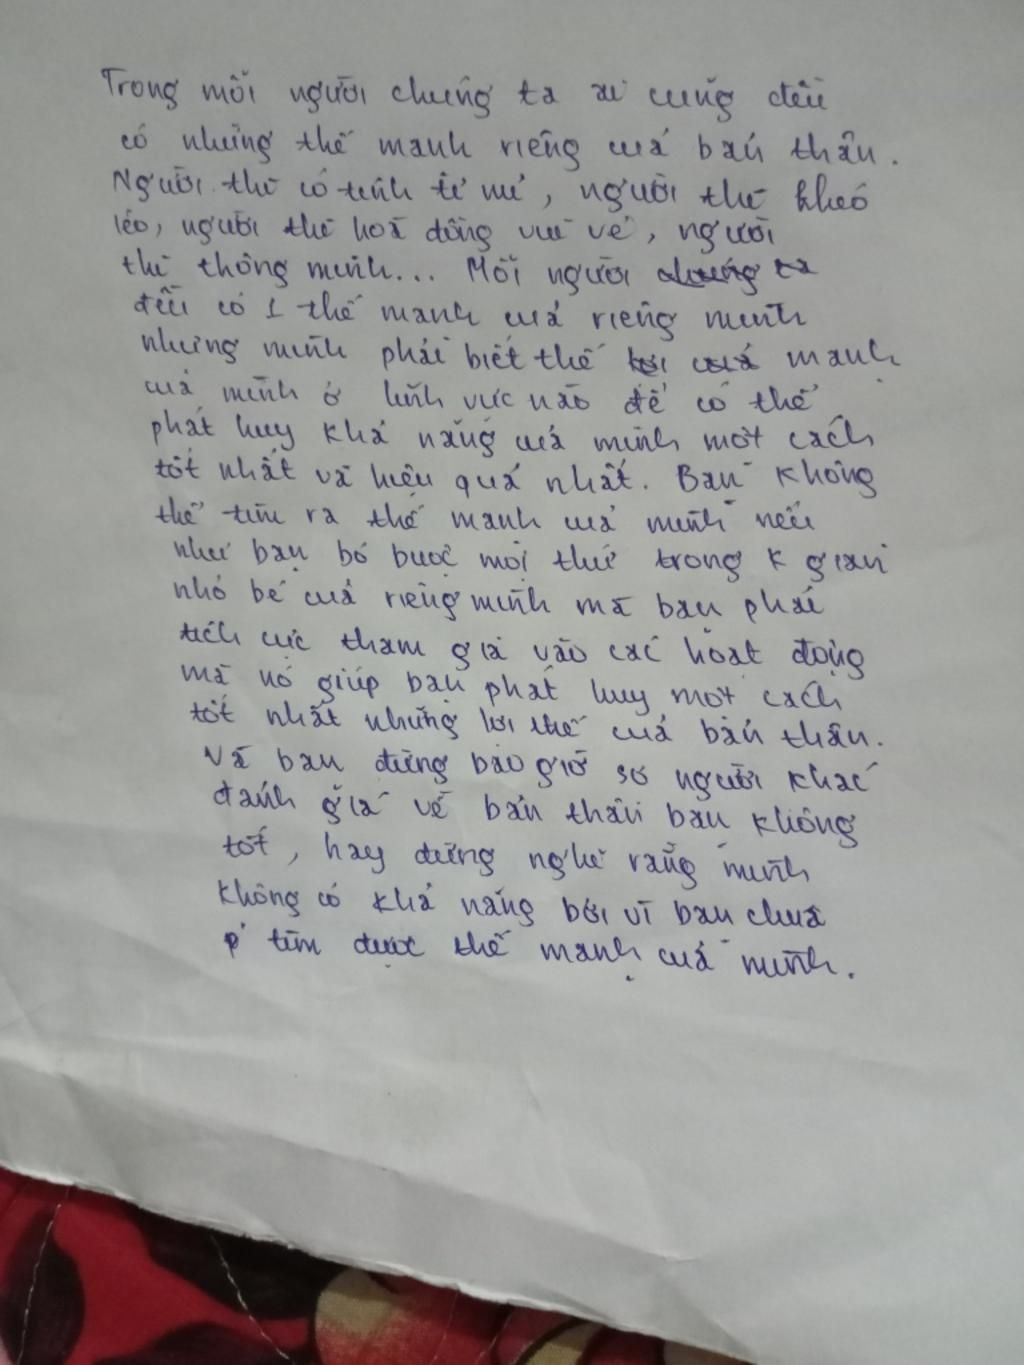 Trong mỗi người chúng ta ai cũng đều
có những thế mạnh riêng của bản thân.
Người thì có tính tỉ mỉ, người thì khéo
léo, người thì hoà đồng vui vẻ, người
thì thông minh... Mỗi người chúng ta
đều có 1 thế mạnh của riêng mình
nhưng mình phải biết thế của mạnh
của mình ở lĩnh vực nào để có thể
phát huy khả năng của mình một cách
tốt nhất và hiệu quả nhất. Bạn không
thể tìm ra thế mạnh của mình nếu
như bạn bó buộc mọi thứ trong k gian
nhỏ bé của riêng mình mà bạn phải
tích cực tham gia vào các hoạt động
mà nó giúp bạn phát huy một cách
tốt nhất những lợi thế của bản thân.
Và bạn đừng bao giờ sợ người khác
đánh giá về bản thân bạn không
tốt, hay đừng nghĩ rằng mình
không có khả năng bởi vì bạn chưa
tìm được thế mạnh của mình.